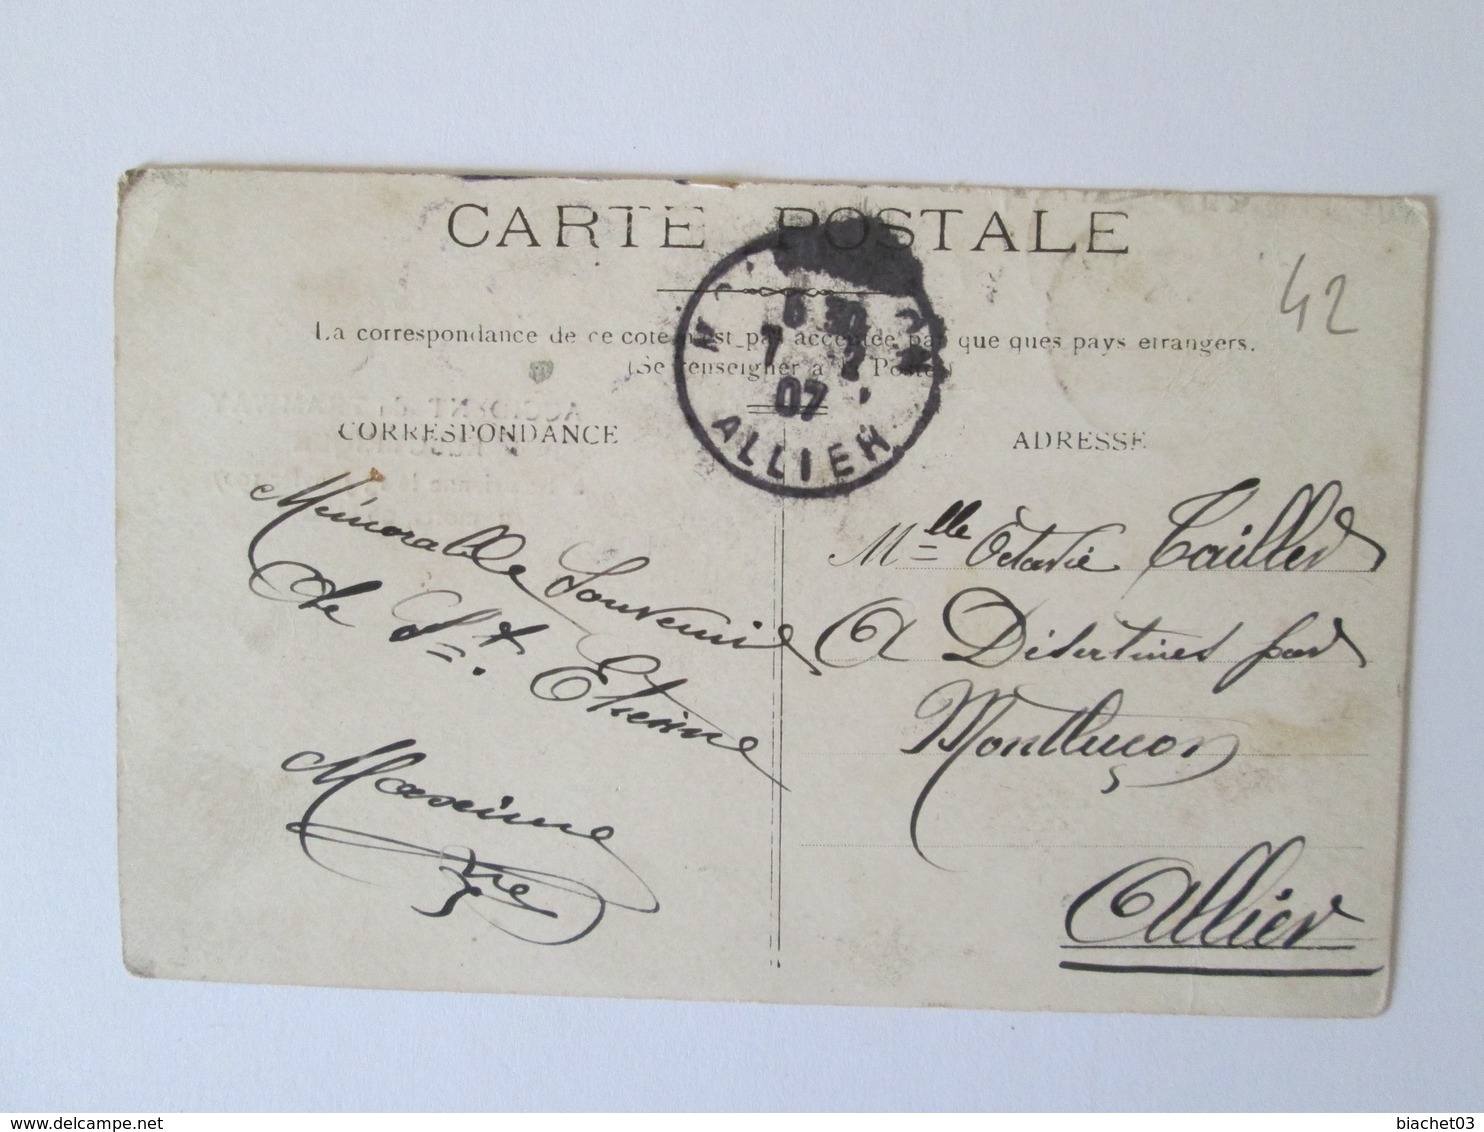 CARTE POSTALE
La correspondance de ce coté n'est pas acceptée par quelques pays étrangers.
(Se renseigner à la Poste)
6 30
7 - 2
07
ALLIER
42
CORRESPONDANCE
ADRESSE
Mémorable Souvenir
de St. Etienne
Maxime
Mlle Octavie Tailler
A Désertines par
Montluçon
Allier
biachet03